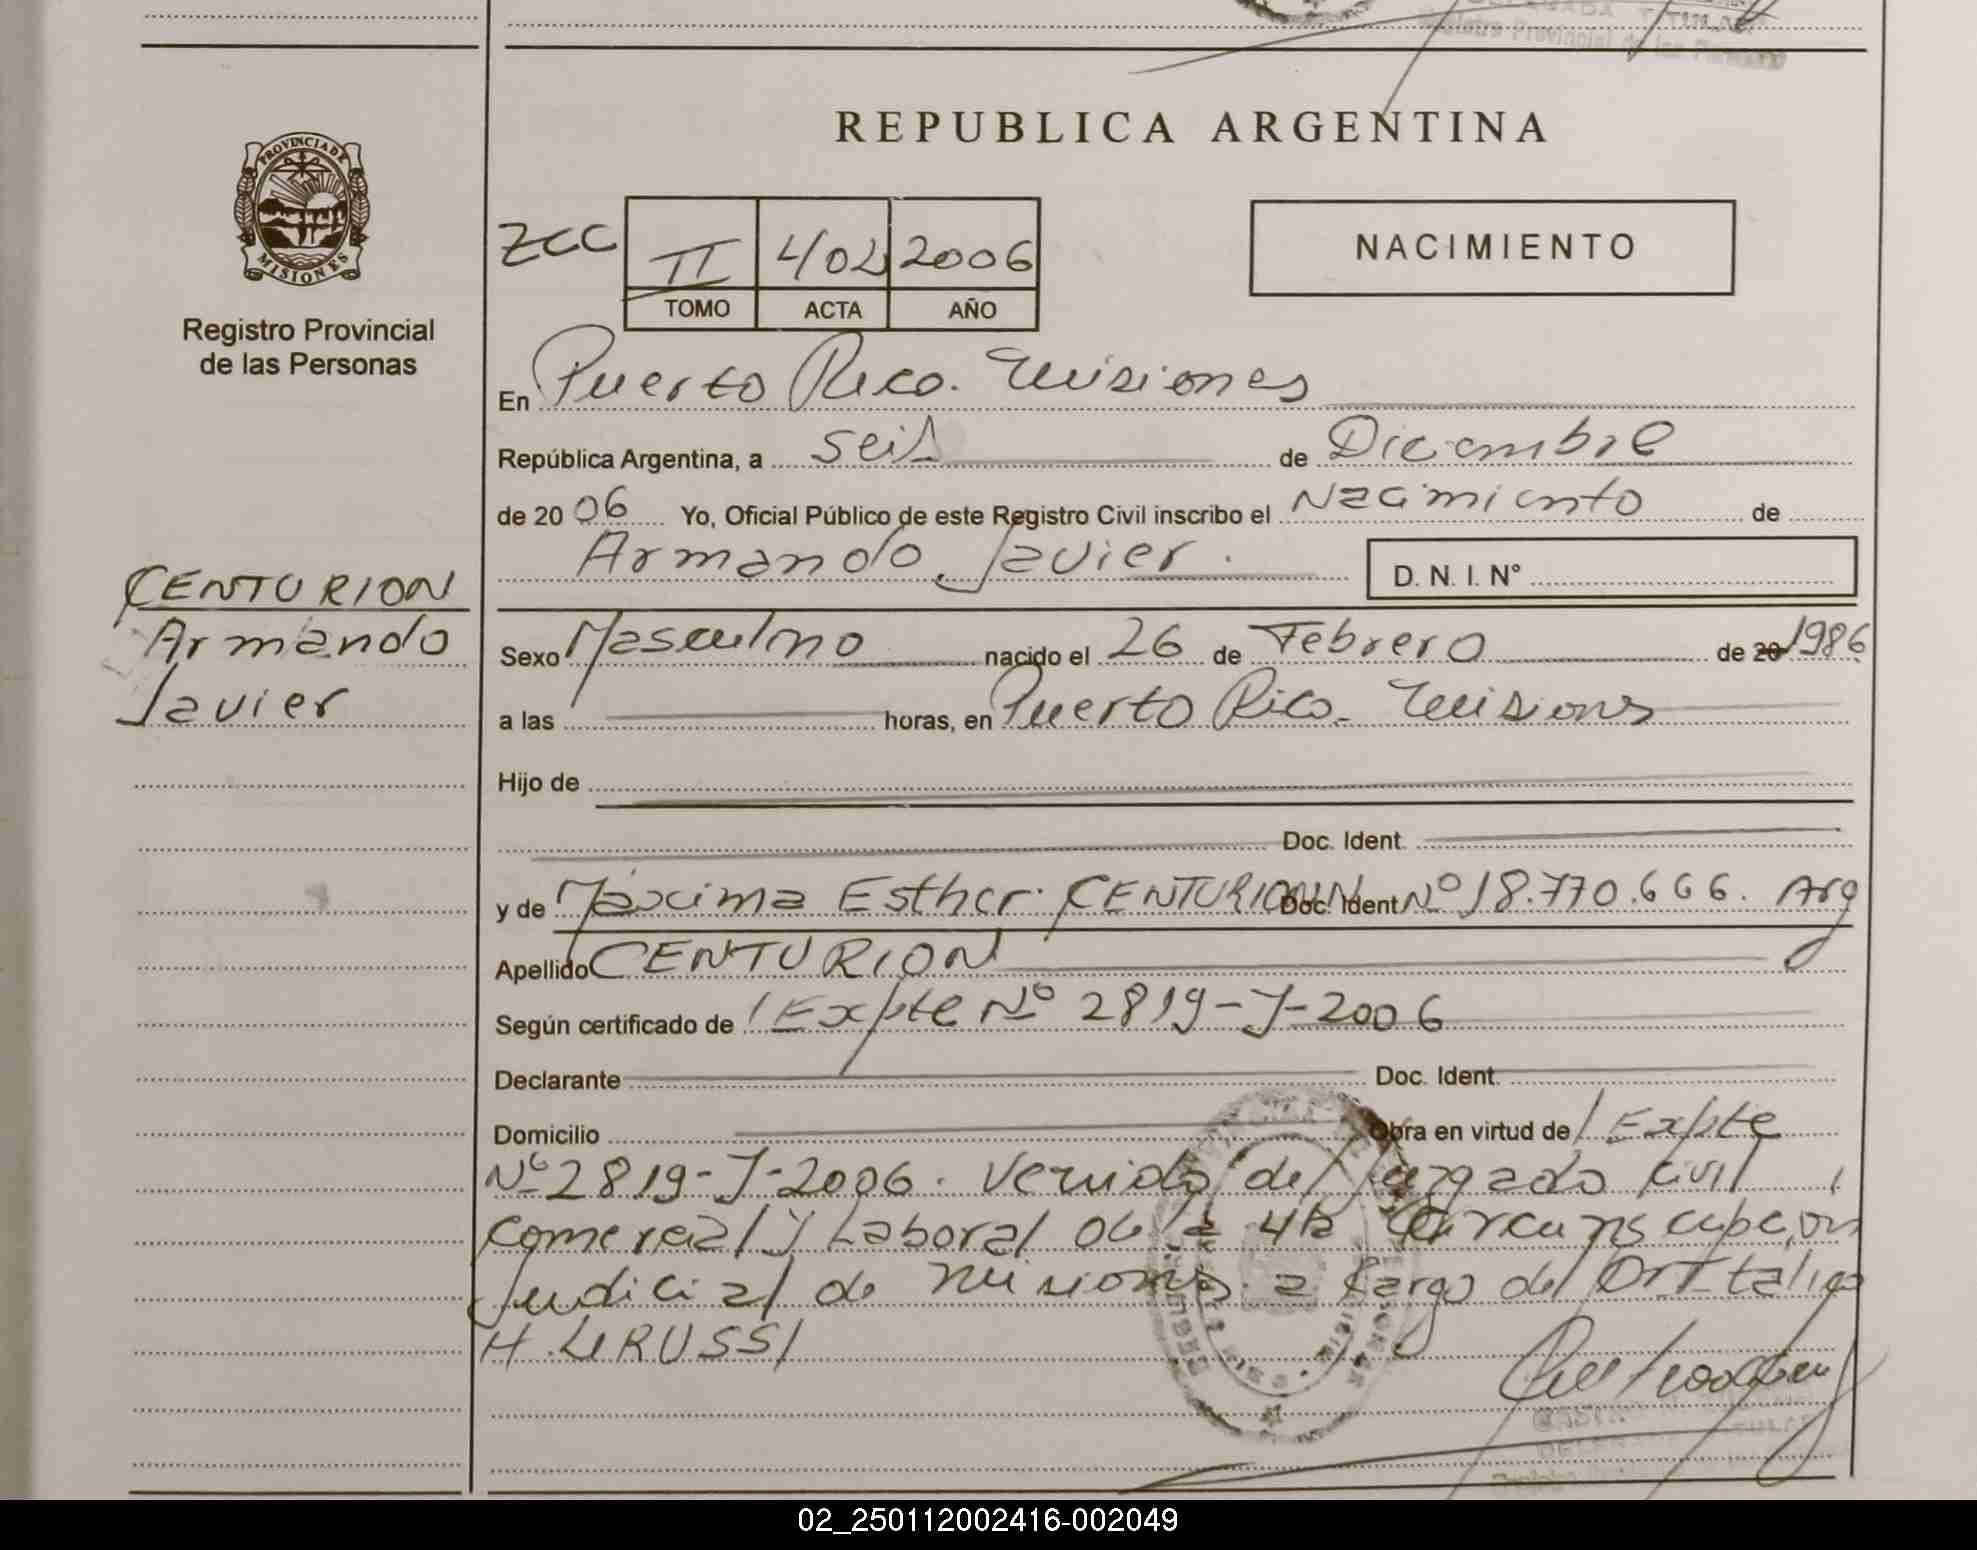 REPUBLICA ARGENTINA
PROVINCIA DE
MISIONES
Registro Provincial
de las Personas
ZCC
II 402 2006
TOMO ACTA AÑO
NACIMIENTO
En Puerto Rico. Misiones
República Argentina, a seis de Diciembre
de 2006 Yo, Oficial Público de este Registro Civil inscribo el Nacimiento de
Armando Javier. D. N. I. N°
CENTURION
Armando
Javier
Sexo Masculino nacido el 26 de Febrero de 20 1986
a las horas, en Puerto Rico. Misiones
Hijo de
Doc. Ident.
y de Máxima Esther CENTURION Doc. Ident. Nº 18.770.666. Arg
Apellido CENTURION
Según certificado de Expte Nº 2819-J-2006
Declarante Doc. Ident.
Domicilio Obra en virtud de Expte
Nº 2819-J-2006. Venido del Juzgado Civil,
Comercial y Laboral de la 4ta Circunscripcion
Judicial de Misiones a Cargo del Dr Italico
H.
02_250112002416-002049